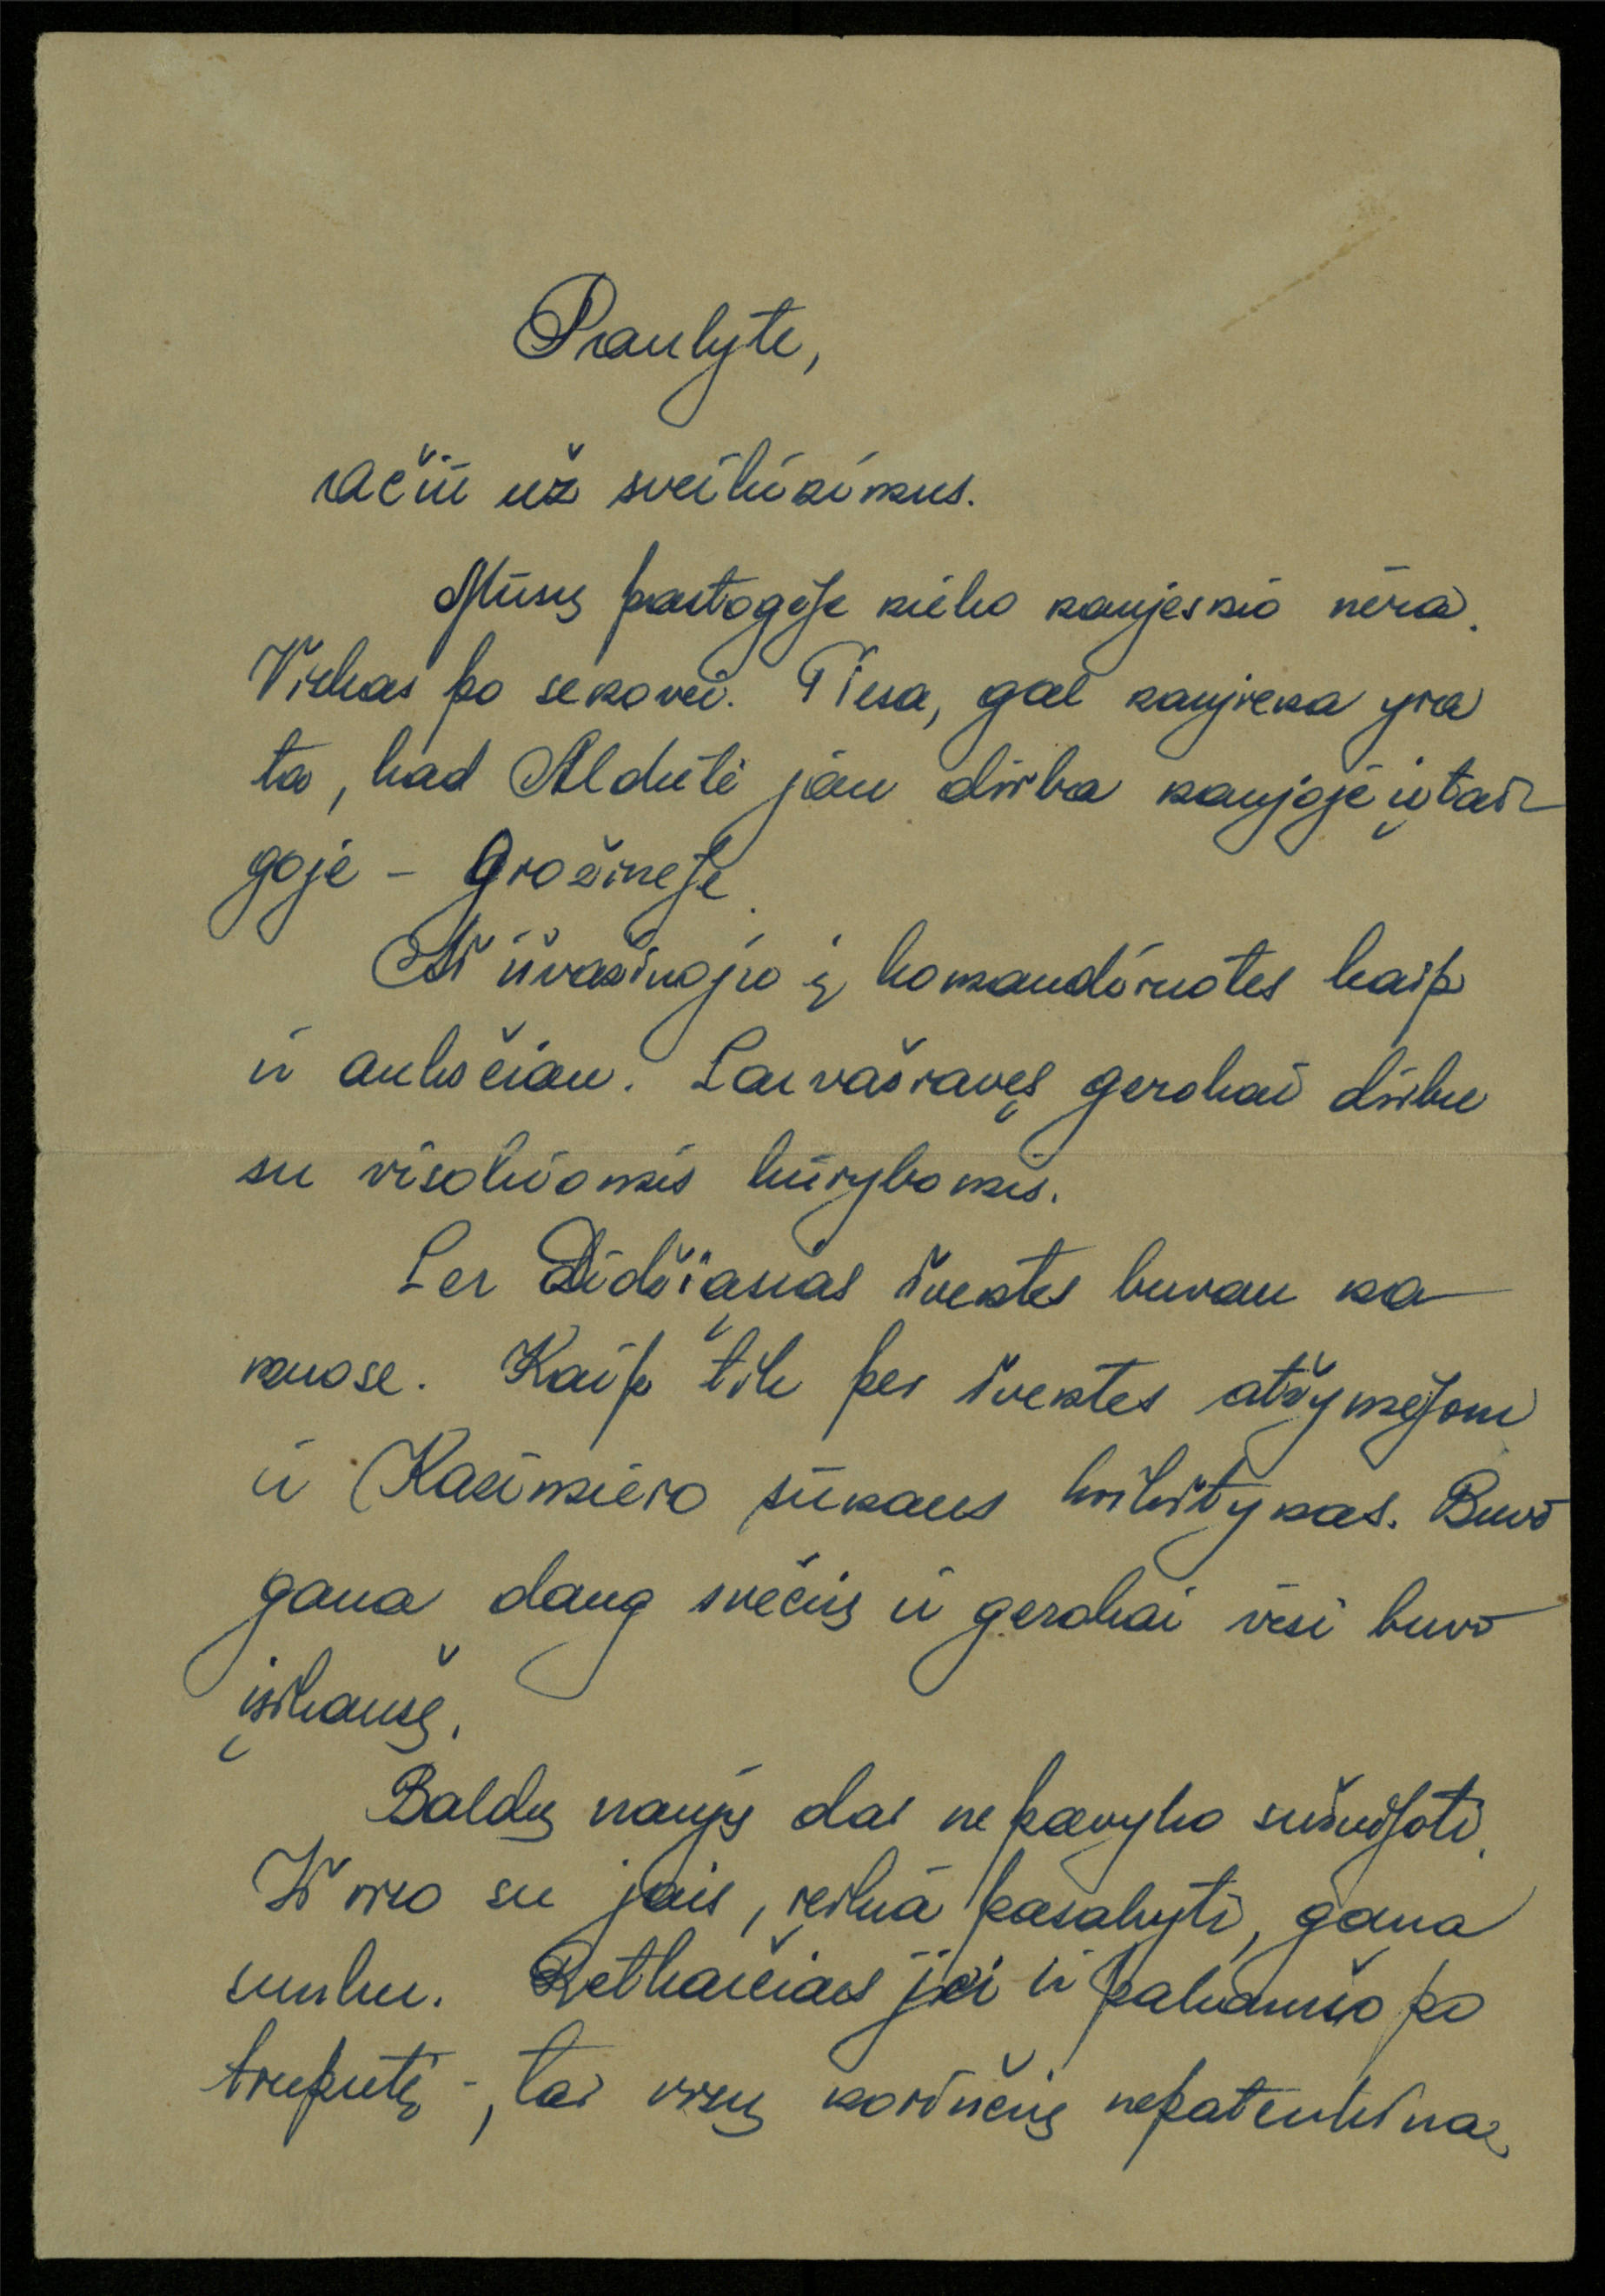 Praulyte,
ačiū už sveikinimus.
Mūsų pastogėje nieko naujesnio nėra.
Viskas po senovei. Tiesa, gal naujiena yra
ta, kad Aldutė jau dirba naujoje įstai-
goje – Grožinėje.
Aš išvažinėju į komandiruotes kaip
ir anksčiau. Laivašiavęs gerokai dirbu
su visokiomis kūrybomis.
Per Didžiąsias šventes buvau na-
muose. Kaip tik per šventes atžymėjom
ir Kazimiero sūnaus krikštynas. Buvo
gana daug svečių ir gerokai visi buvo
įsikaušę.
Baldų naujų dar nepavyko sužvejoti.
Iš viso su jais, reikia pasakyti, gana
sunku. Retkarčiais jei ir pakliūna po
truputį –, tai visų norinčių nepatenkina